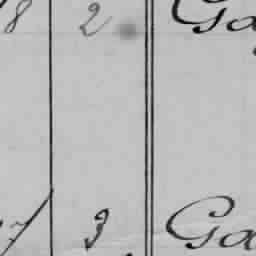 8 2 Ga
7 3 Ga